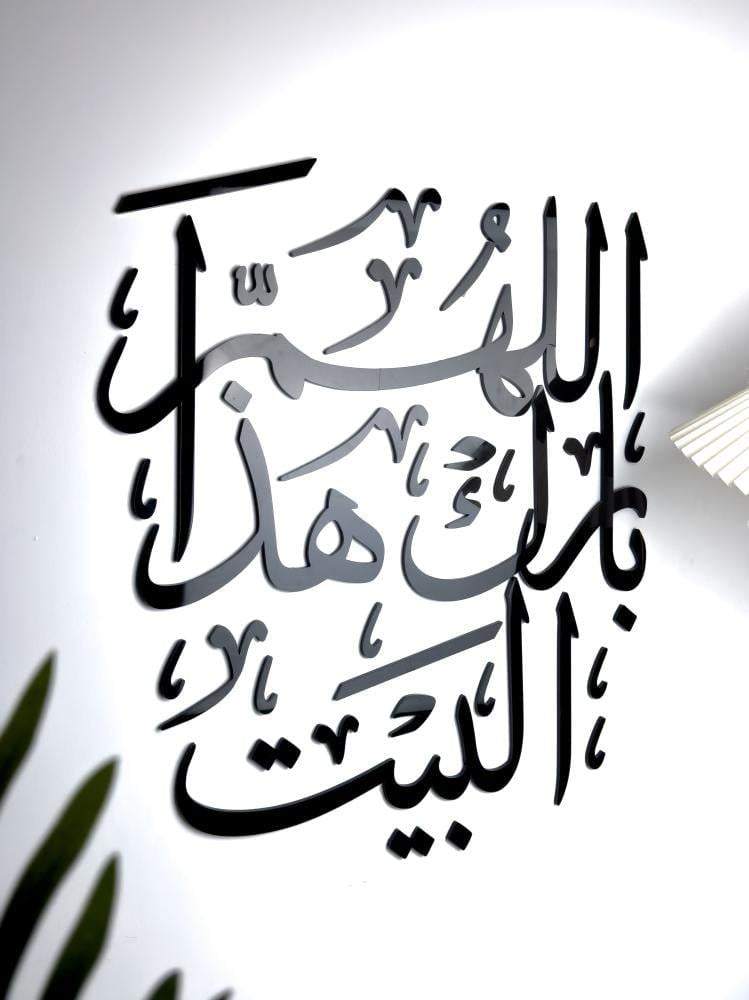 اللهُمَّ
بارك هذا
البيت